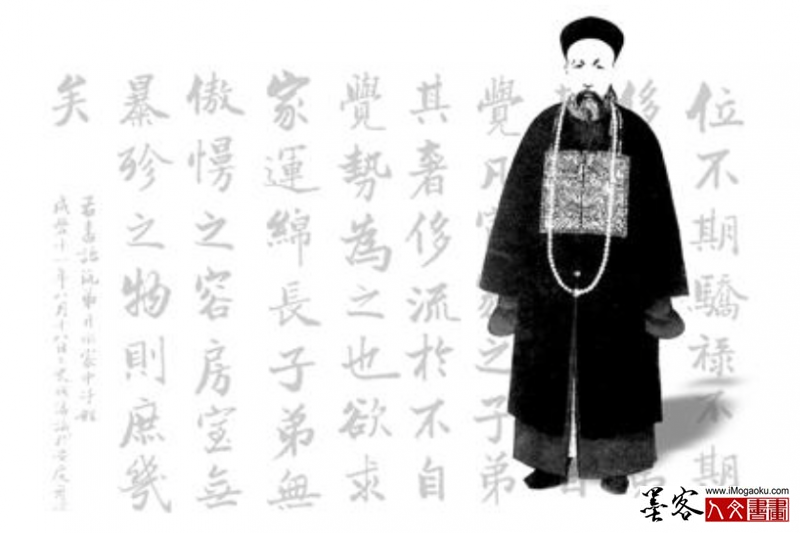 位不期驕祿不期
侈
覺凡家之子弟
其奢侈流於不自
覺勢為之也欲求
家運綿長子弟無
傲慢之容房室無
暴殄之物則庶幾
矣
咸豐十一年八月十八日
墨客
人文書畫
www.iMogaoku.com